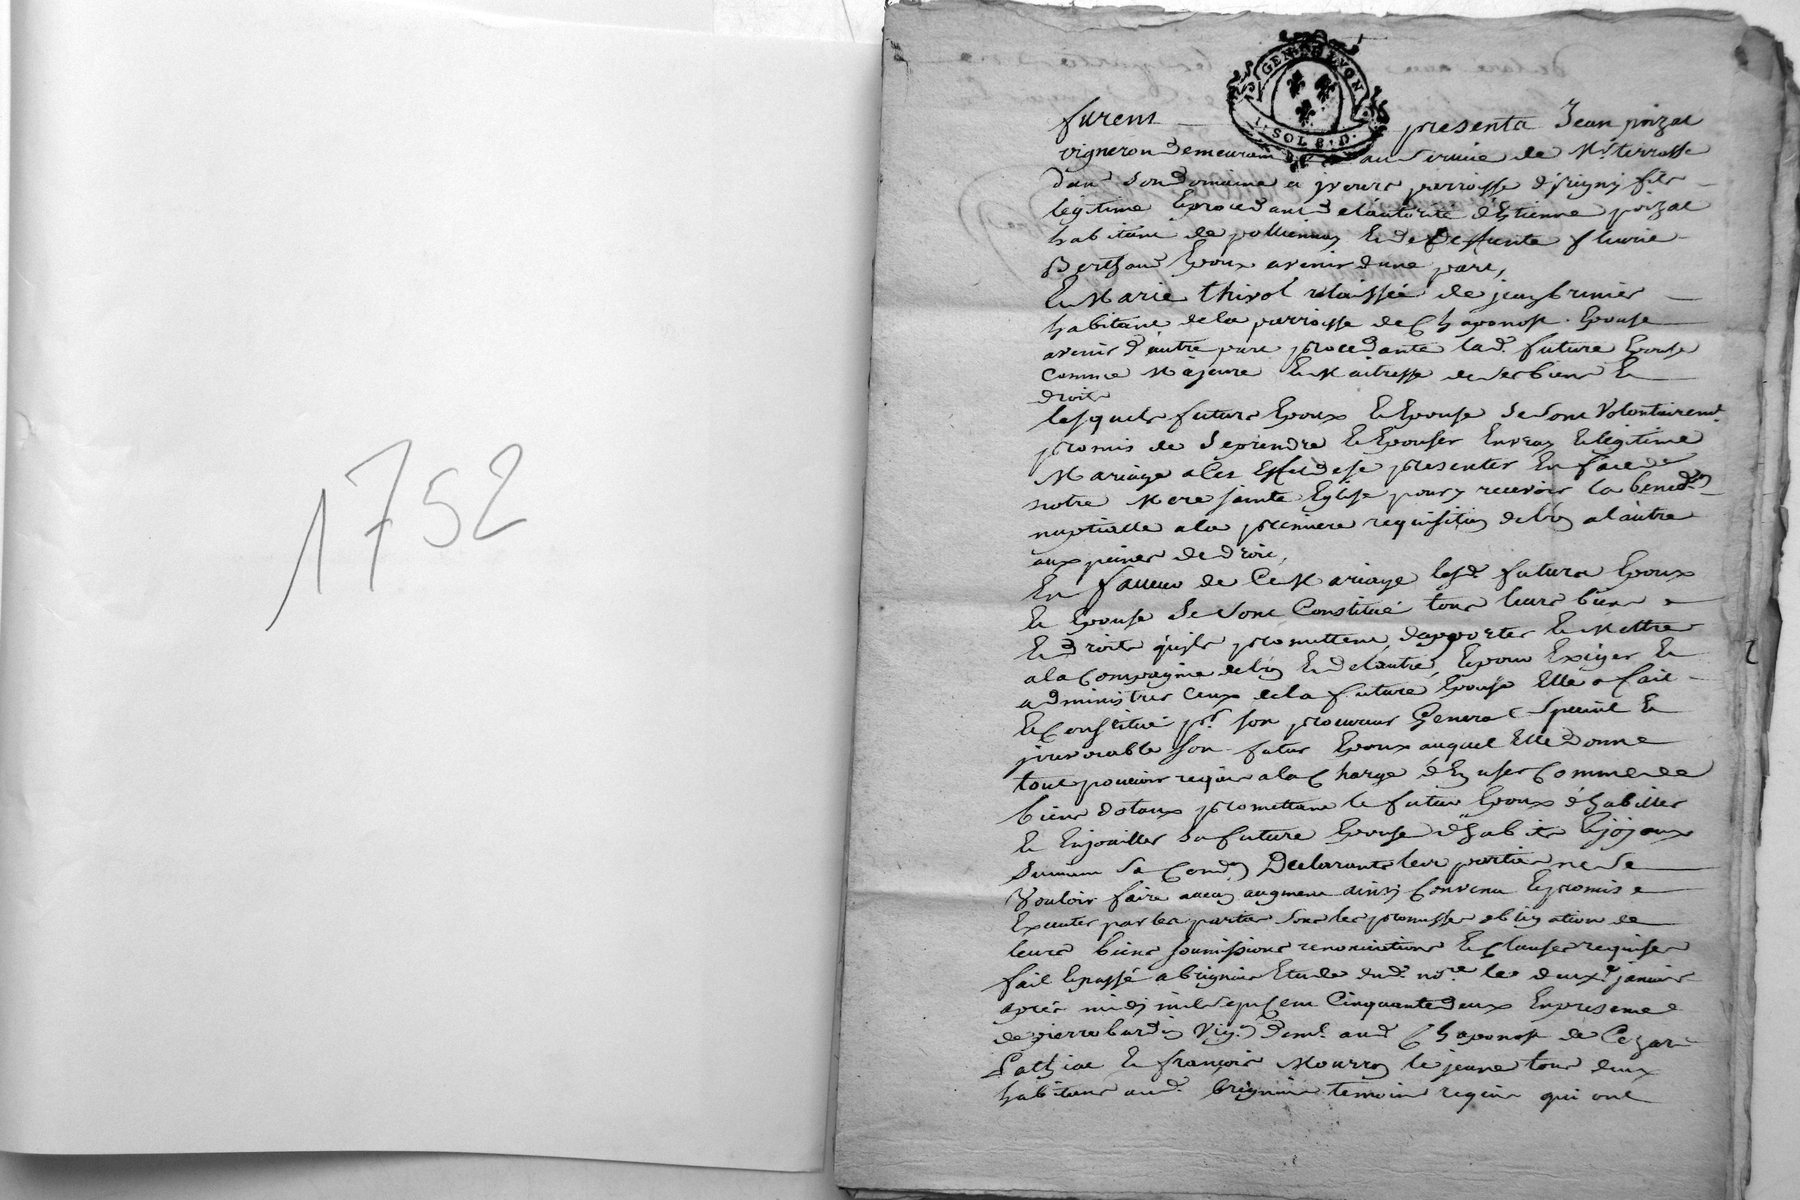 1752
GEN. DE LYON
1. SOL 8. D.
furent presents Jean poizat
vigneron demeurant au service de Mr terrasse
dans son domaine a yvours parroisse d'jrigny fils
legitime Et procedant de l'autorité d'Estienne poizat
habitant de pollionnay Et de deffunte fleurie
Berthaud Epoux avenir d'une part,
Et Marie thivol relaissée de jean brunier
habitant de la parroisse de Chaponost. Epouse
avenir d'autre part procedante lad. future Epouse
comme Majeure Et Maitresse de ses biens Et
droits
lesquels futurs Epoux Et Epouse se sont Volontairemt
promis de se prendre Et Epouser En vray Et legitime
Mariage a Ces Effet de se presenter En face de
notre Mere sainte Eglise pour y recevoir la bened.on
nuptialle a la premiere requisition de l'un a l'autre
aux peines de droit,
En faveur de Ce Mariage lesd. futurs Epoux
Et Epouse se sont Constitué tous leurs biens
Et droits qu'ils promettent d'apporter Et Mettre
a la Compagnie de l'un Et de l'autre, Et pour Exiger Et
administrer ceux de la future Epouse Elle a fait
Et Constitué pr. son procureur General special Et
jrrevocable son futur Epoux auquel Elle donne
tout pouvoir requis a la Charge d'En user Comme de
biens dotaux promettant le futur Epoux d'habiller
Et Enjoailler sa future Epouse d'habits Et joyaux
suivant sa Cond.on Declarants les parties ne se
Vouloir faire aucun augment ainsy Convenu Et promis
Executer par les parties sous les promesses obligation de
leurs biens soumissions renonciations Et Clauses requises
fait Et passé a brignais Etude dud. no.re le deux.e janvier
après midy mil sept Cent Cinquante deux En presence
de pierre bardin Vig.n dem.t aud. Chaponost de Cezar
Lathiat Et françois Mourron le jeune tous deux
habitans aud. brignais temoins requis qui ont